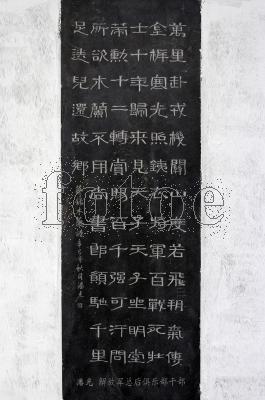 萬里赴戎機關山度若飛朔氣傳
金柝寒光照鐵衣將軍百戰死壯
士十年歸來見天子天子坐明堂
策勳十二轉賞賜百千強可汗問
所欲木蘭不用尚書郎願馳千里
足送兒還故鄉
解放军总后俱乐部干部
fotoe